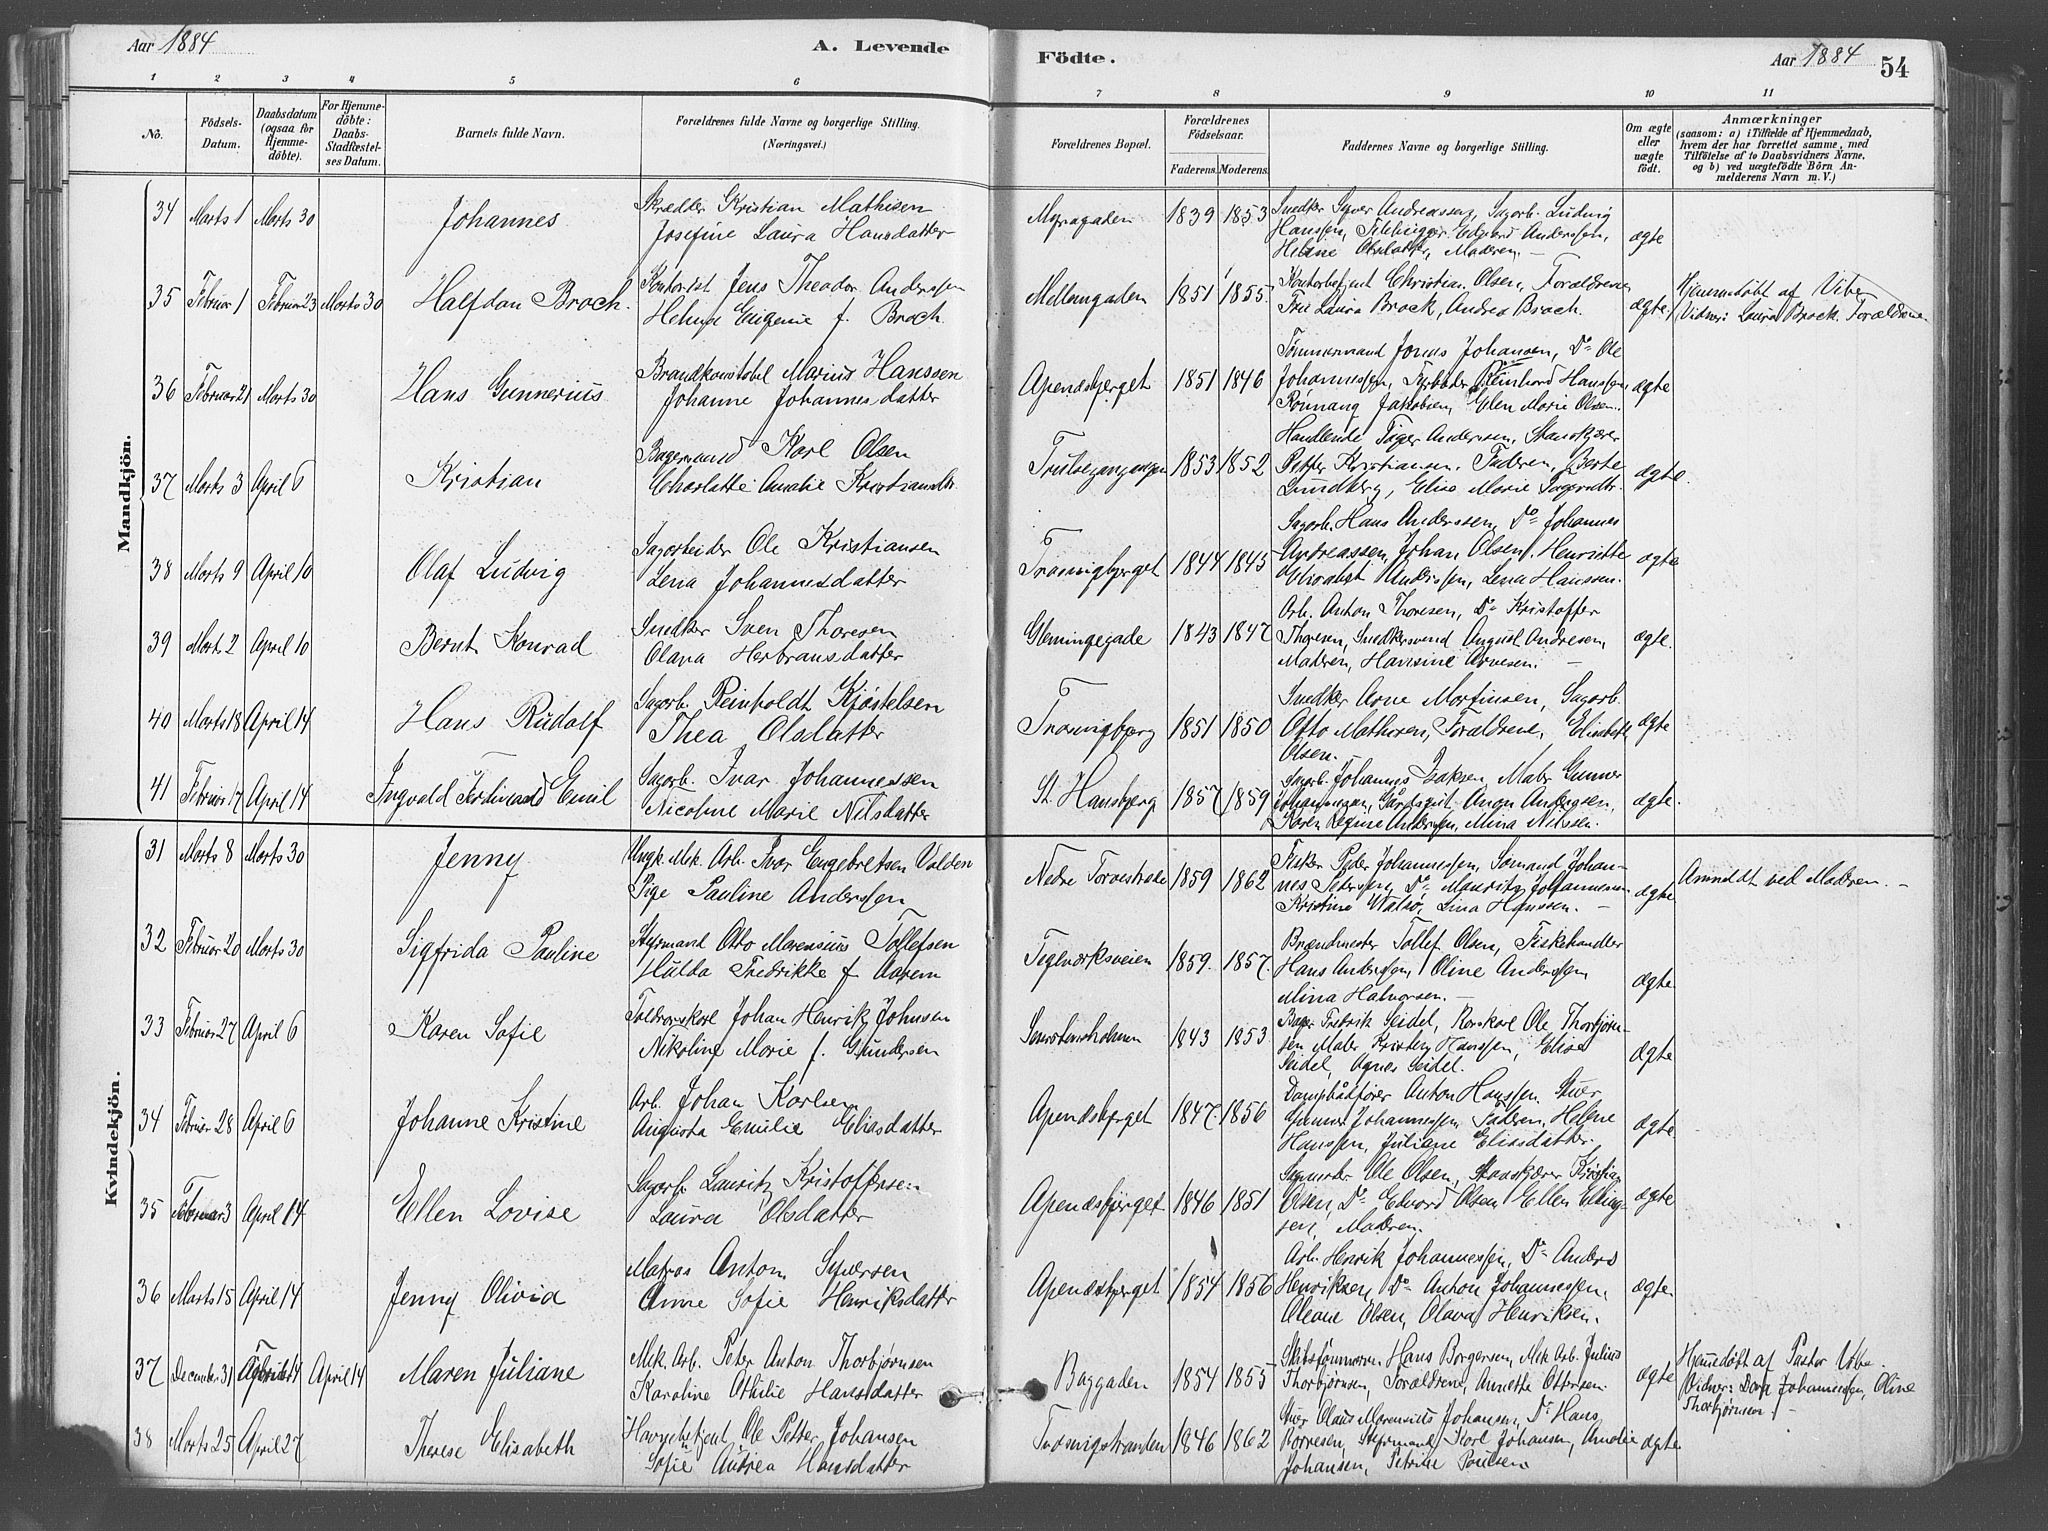 Aar 1884
A. Levende
Födte.
Aar 1884
54
1 2 3 4 5 6 7 8 9 10 11
No.
Födsels-Datum.
Daabsdatum (ogsaa for Hjemme-döbte).
For Hjemme-döbte: Daabs-Stadfæstel-ses Datum.
Barnets fulde Navn.
Forældrenes fulde Navne og borgerlige Stilling.
(Næringsvei.)
Forældrenes Bopæl.
Forældrenes Födselsaar.
Faderens. Moderens.
Faddernes Navne og borgerlige Stilling.
Om ægte eller uægte födt.
Anmærkninger
(saasom: a) i Tilfælde af Hjemmedaab,
hvem der har forrettet samme, med
Tilföielse af to Daabsvidners Navne,
og b) ved uægtefödte Börn An-
melderens Navn m. V.)
Mandkjön.
34 Marts 1 Marts 30 Johannes
Skrædder Kristian Mathisen
Josefine Laura Hansdatter
Myragaden 1839 1853
Snedker Syver Andreassen, Sagarb. Ludvig
Hanssen, Edvard Anderssen,
Helene Olsdatter, Moderen.
ægte
35 Februar 1 Februar 23 Marts 30 Halfdan Broch.
Kontorist Jens Theodor Anderssen
Eugenie f. Broch.
Mellemgaden 1851 1855
Kontorbetjent Christian Olsen, Forældrene
Fru Laura Brock, Andrea Broch.
ægte.
Hjemmedøbt af Vibe
Vidner: Laura Brock. Forældrene
36 Februar 21 Marts 30 Hans Gunnerius
Brandkonstabel Marius Hanssen
Johanne Johannesdatter
Apenæsbjerget 1851 1846
Tømmermand Jonas Johansen, Do Ole
Johannessen, Fyrbøder Reinhard Hanssen
Rønnaug Jakobsen, Elen Marie Olsen.
ægte
37 Marts 3 April 6 Kristian
Bagersvend Karl Olsen
Charlotte Amalie Kristiansdtr.
1853 1852
Handlende Anderssen,
Petter Kristiansen. Faderen, Berte
Lundberg, Elise Marie
ægte.
38 Marts 9 April 10 Olaf Ludvig
Sagarbeider Ole Kristiansen
Lena Johannesdatter
Trosvigbjerget 1844 1845
Sagarb. Hans Anderssen, Do Johannes
Andreassen, Johan Olsen. Henriette
Elisabet Anderssen, Lena Hanssen.
ægte
39 Marts 2 April 10 Bernt Konrad
Snedker Sven Thoresen
Olava Herbransdatter
Glemmegade 1843 1847
Arb. Anton Thoresen, Do Kristoffer
Thoresen, Snedkersvend August Andresen,
Moderen, Hansine Arnesen.
ægte.
40 Marts 18 April 14 Hans Rudolf
Sagarb. Reinholdt Kjøstelsen
Thea Olsdatter
Trosvigbjerg 1851 1850
Snedker Arne Mortinsen, Sagarb.
Otto Mathisen, Forældrene, Elisabeth
Olsen.
ægte
41 Februar 17 April 14 Ingvald Ferdinand Emil
Sagarb. Ivar Johannessen
Nicoline Marie Nilsdatter
St. Hansbjerg 1857 1859
Sagarb. Johannes Isaksen, Maler Gunner
Johannessen, Anderssen,
Karen Regine Anderssen, Mina Nilssen.
ægte.
Kvindekjön.
31 Marts 8 Marts 30 Jenny
Ungk. Mek. Arb. Ivar Engebretsen Volden
Pige Pauline Anderssen
Nedre Torvestrede 1859 1862
Fisker Peder Johannessen, Sømand Johan-
nes Pedersen, Do Mauritz Johannessen
Kristine Walsø, Lina Hanssen.
ægte
Anmeldt ved Moderen.
32 Februar 20 Marts 30 Sigfrida Pauline
Styrmand Otto Marensius Tollefsen
Hulda Fredrikke f. Aarem
Teglværksveien 1859. 1857.
Brandmester Tollef Olsen, Fiskehandler
Hans Anderssen, Oline Anderssen,
Mina Halvorsen.
ægte
33 Februar 27 April 6 Karen Sofie
Johan Henrik Johnsen
Nikoline Marie f. Gundersen
1843 1853
Bager Fredrik Seidel, Ole Thorbjørn-
sen Maler Kristen Hanssen, Elise
Seidel, Agnes Seidel.
ægte
34 Februar 28 April 6 Johanne Kristine
Arb. Johan Karlsen
Augusta Emilie Eliasdatter
Apenæsbjerget 1847. 1856
Dampbådfører Anton Hanssen. Stuer
Gunner Johannessen, Faderen, Helene
Hanssen, Juliane Eliasdatter.
ægte
35 Februar 3 April 14 Ellen Lovise
Sagarb. Lauritz Kristoffersen
Laura Olsdatter
Apenæsbjerget 1846 1851
Sagmester Ole Olsen, Kristian
Olsen, Do Edvard Olsen Ellen Elling-
sen, Moderen.
ægte
36 Marts 15 April 14 Jenny Olivia
Matros Anton Syversen
Anne Sofie Henriksdatter
Apenæsbjerget 1854 1856
Arb. Henrik Johannessen, Do Anders
Henriksen, Do Anton Johannessen,
Oleane Olsen, Olava Henriksen.
ægte
37 December 31 14 April 14 Maren Juliane
Mek. Arb. Peter Anton Thorbjørnsen
Karoline Othilie Hansdatter
Baggaden 1854 1855
Skibstømmerm. Hans Borgersen, Mek Arb. Julius
Thorbjørnsen, Forældrene, Annette Ottersen.
ægte
Hjemmedøbt af Pastor Vibe.
Vidner: Johannessen, Oline
Thorbjørnsen
38 Marts 25 April 27 Therese Elisabeth
Havnebetjent Ole Petter Johansen
Sofie Andrea Hansdatter
Trosvigstranden 1846 1862
Stuer Olaus Marensius Johansen, Do Hans
Borresen, Styrmand Karl Johansen, Amalie
Johansen, Petrine Poulsen
ægte